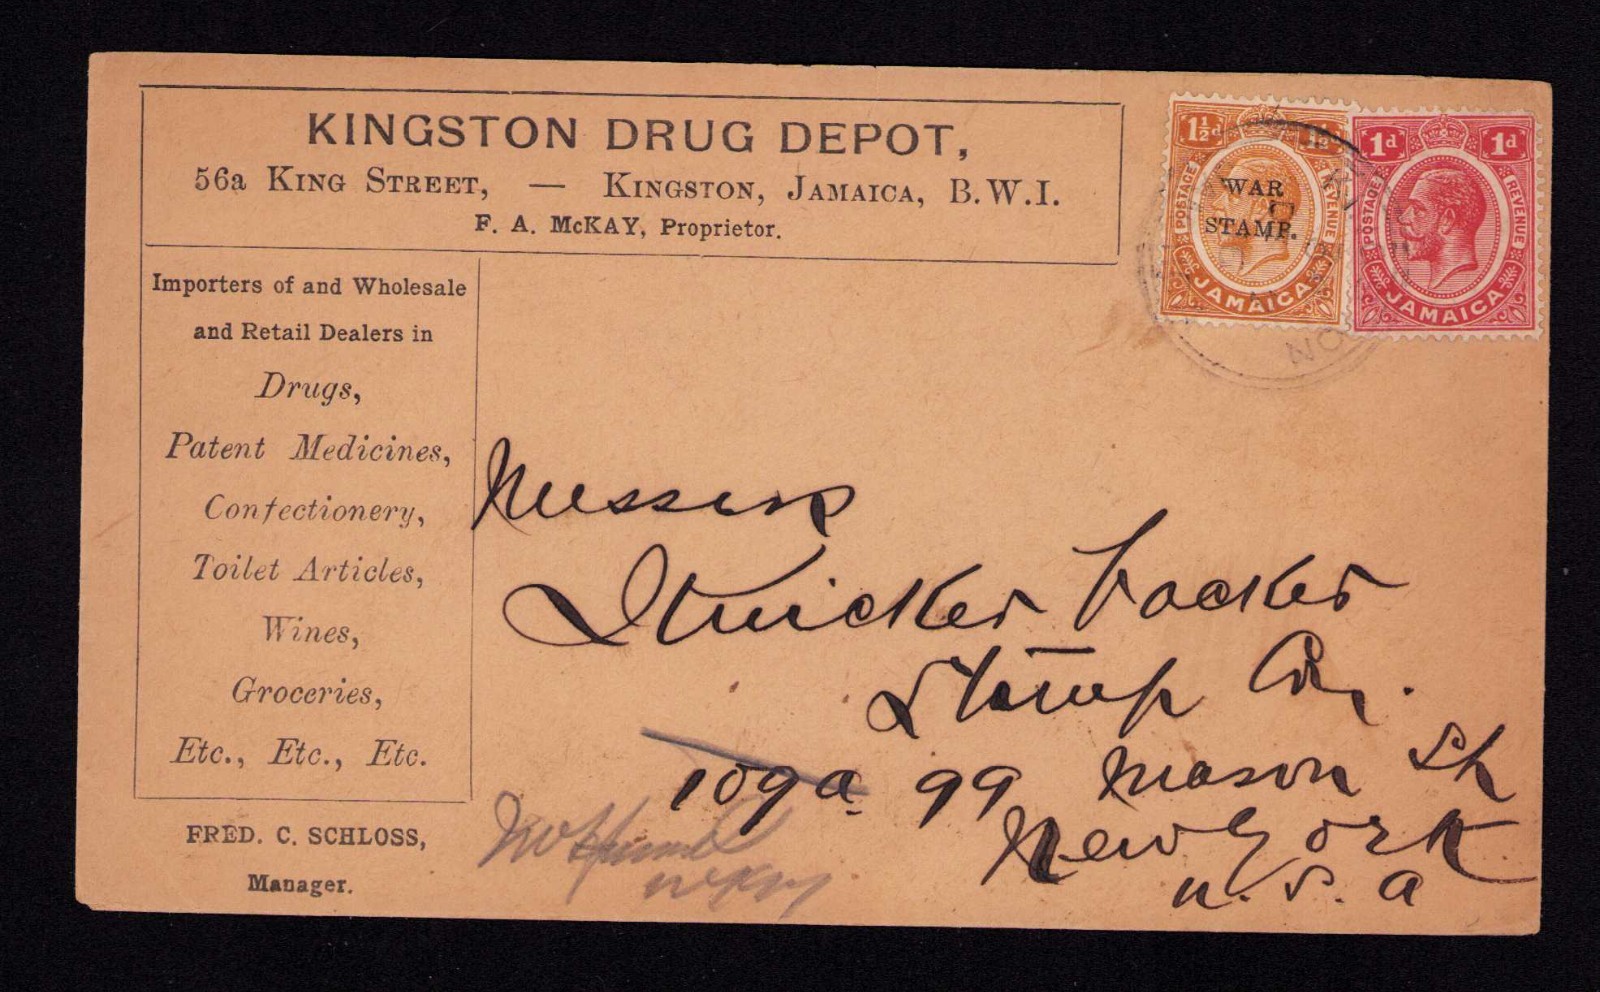 KINGSTON DRUG DEPOT,
56a KING STREET, — KINGSTON, JAMAICA, B.W.I.
F. A. McKAY, Proprietor.
1½d 1½d
POSTAGE REVENUE
WAR
STAMP.
JAMAICA
1d 1d
POSTAGE REVENUE
JAMAICA
ON
Importers of and Wholesale
and Retail Dealers in
Drugs,
Patent Medicines,
Confectionery,
Toilet Articles,
Wines,
Groceries,
Etc., Etc., Etc.
FRED. C. SCHLOSS,
Manager.
Messrs
Knicker bocker
Stamp Co.
109a 99 Mason St
New York
U.S.A